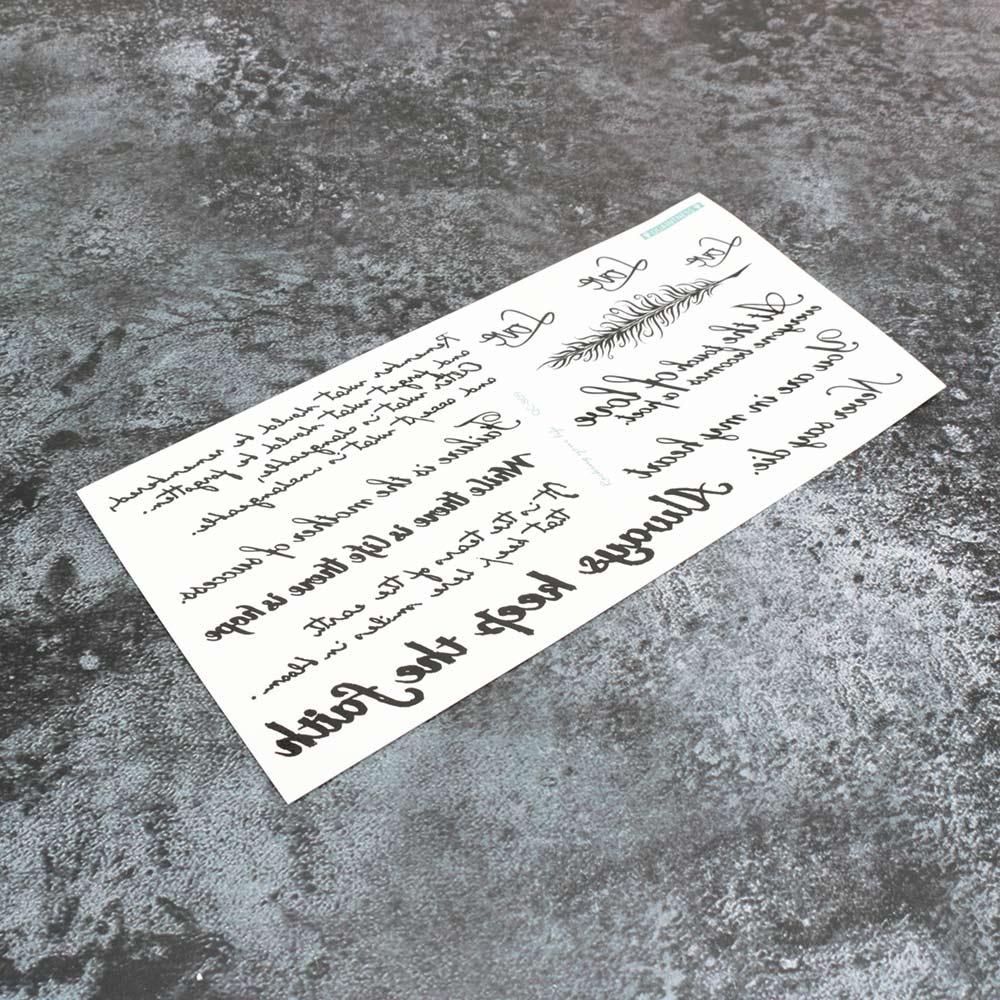 Love
Love
Love
At the touch of love
anyone becomes a poet.
You are in my heart
Never say die.
QC-599
Remember what should be remembered,
and forget what should be forgotten.
Alter what is changeable,
and accept what is unchangeable.
Failure is the mother of success.
While there is life there is hope
It is the tears of the earth
that keep her smiles in bloom.
Always keep the faith